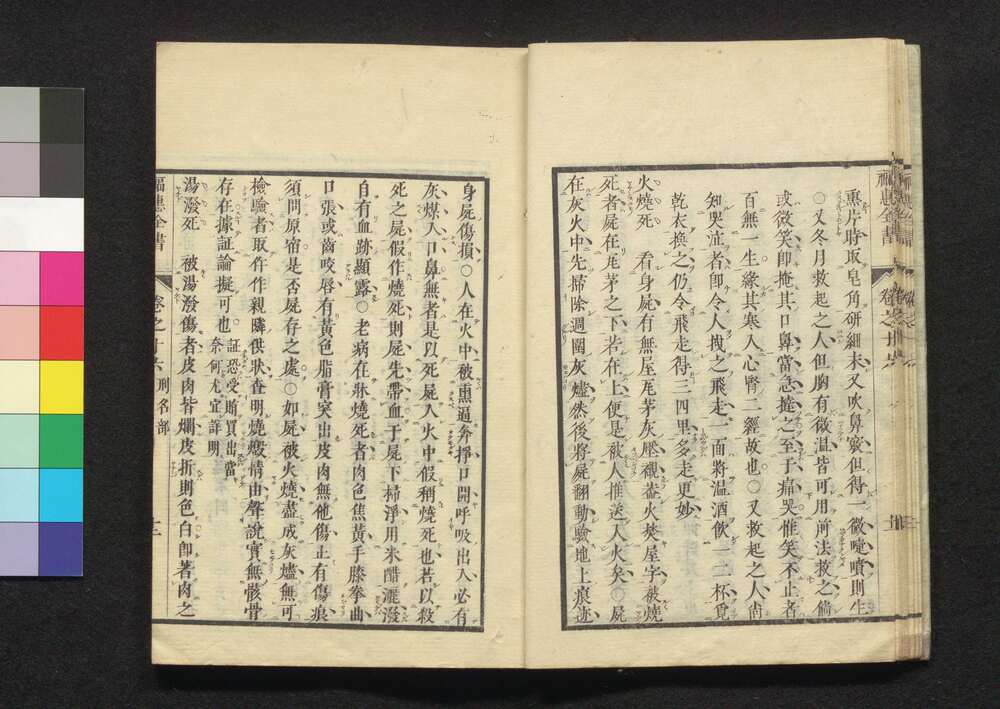 熏片時取皂角研細末又吹鼻竅但得一微嚏噴則生
○又冬月救起之人但胸有微温皆可用前法救之倘
或微笑卽掩其口鼻當急搥之至于痛哭惟笑不止者
百無一生緣其寒人心腎二經故也○又救起之人尙
知哭泣者卽令人拽之飛走一面將温酒飲一二杯覓
乾衣換之仍令飛走得三四里多走更妙
火燒死　看身屍有無屋瓦茅灰壓襯葢火焚屋宇被燒
死者屍在瓦茅之下若在上便是被人推送入火矣○屍
在灰火中先掃除週圍灰燼然後將屍翻動驗地上痕迹
身屍傷損○人在火中被熏逼奔掙口開呼吸出入必有
灰煤入口鼻無者是以死屍入火中假稱燒死也若以殺
死之屍假作燒死則屍先帶血于屍下掃淨用米醋灑潑
自有血跡顯露○老病在牀燒死者肉色焦黃手膝拳曲
口張或齒咬唇有黃色脂膏突出皮肉無他傷止有傷痕
須問原宿是否屍存之處○如屍被火燒盡成灰燼無可
檢驗者取仵作親隣供狀查明燒燬情由聲說實無骸骨
存在據証論擬可也 証恐受賄買出當
奈何尤宜詳明
湯潑死　被湯潑傷者皮肉皆爛皮折則色白卽著肉之
福惠全書　卷之十六　刑名部